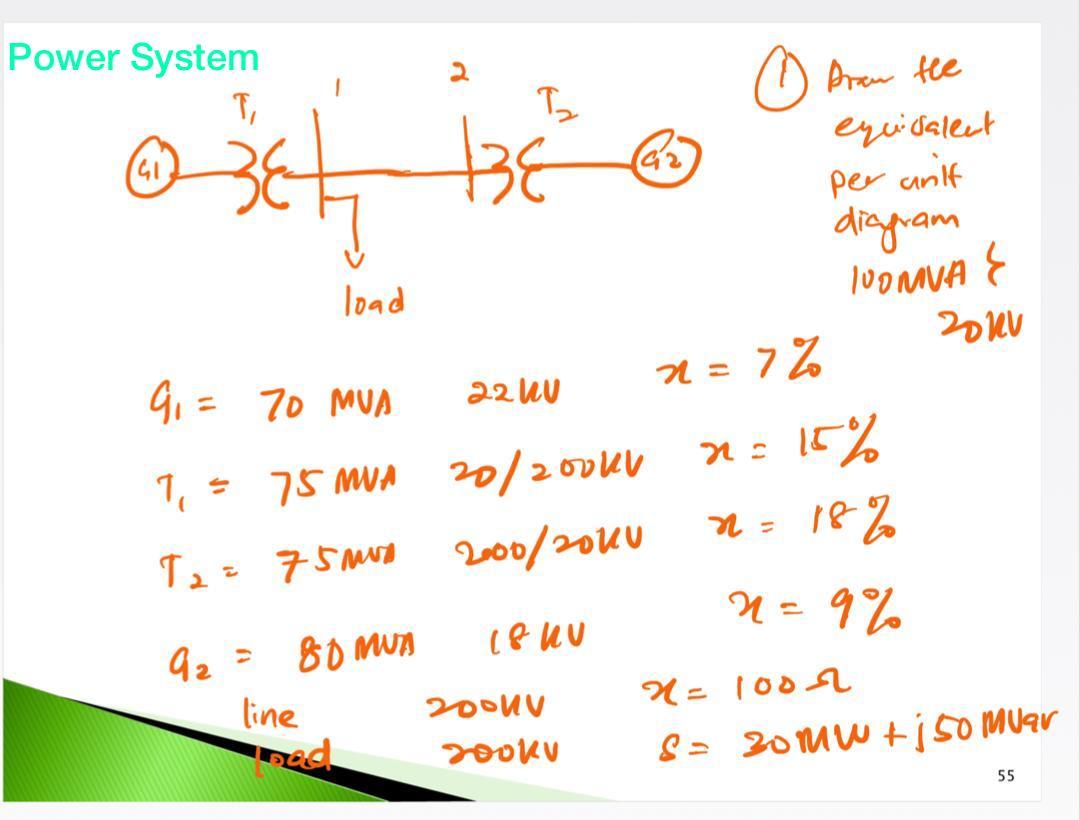 Power System
T1 1 2 T2
G1 G2
load
1 Draw the
equivalent
per unit
diagram
100MVA &
20kV
G1 = 70 MVA 22kV x = 7%
T1 = 75 MVA 20/200kV x = 15%
T2 = 75 MVA 200/20kV x = 18%
G2 = 80 MVA 18kV x = 9%
line 200kV x = 100Ω
load 200kV S = 30MW + j50MVar
55